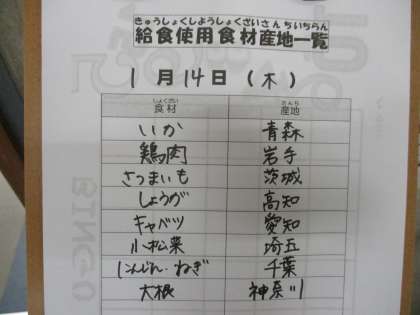 きゅうしょくしようしょくざいさんちいちらん
給食使用食材産地一覧
1月14日(木)
しょくざい さんち
食材 産地
いか 青森
鶏肉 岩手
さつまいも 茨城
しょうが 高知
キャベツ 愛知
小松菜 埼玉
にんじん・ねぎ 千葉
大根 神奈川
BINGO